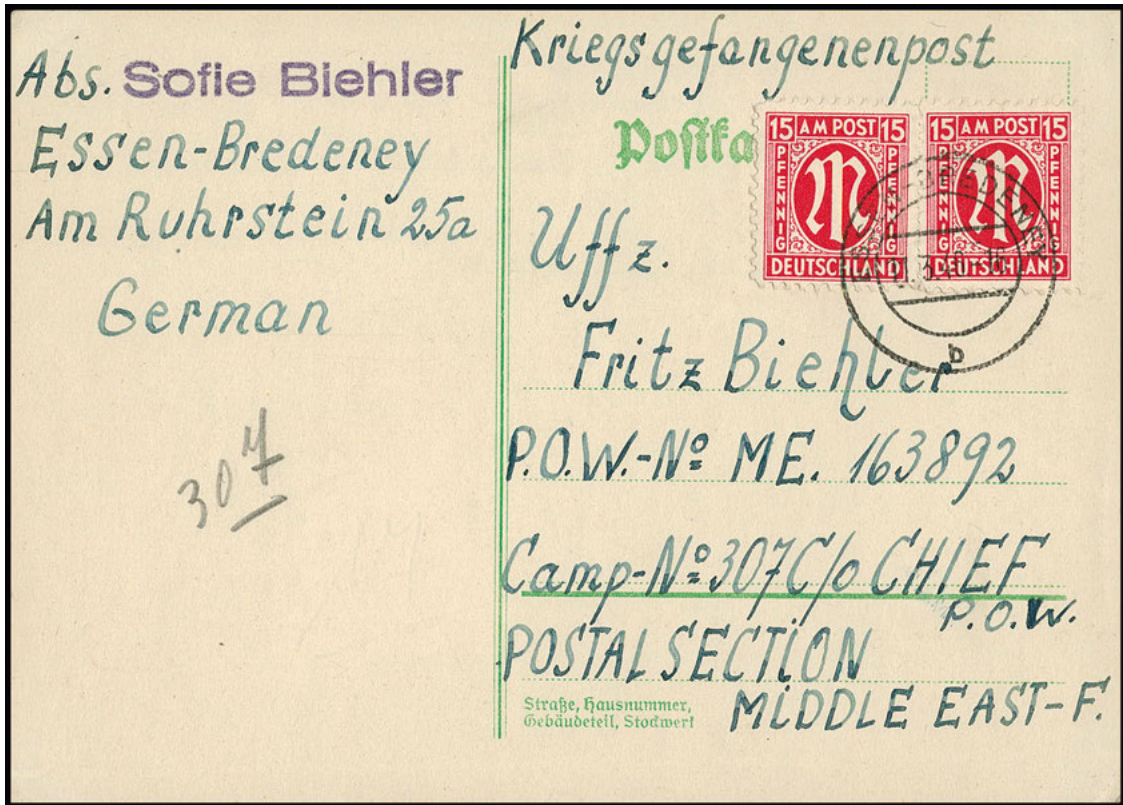 Abs. Sofie Biehler
Essen-Bredeney
Am Ruhrstein 25a
German
307
Kriegsgefangenenpost
Postka
15 AM POST 15
PFENNIG
PFENNIG
DEUTSCHLAND
15 AM POST 15
PFENNIG
PFENNIG
DEUTSCHLAND
b
Uffz.
Fritz Biehler
P.O.W.-Nº ME. 163892
Camp-Nº 307 C/o CHIEF
P.O.W.
POSTAL SECTION
MIDDLE EAST-F.
Straße, Hausnummer,
Gebäudeteil, Stockwerk